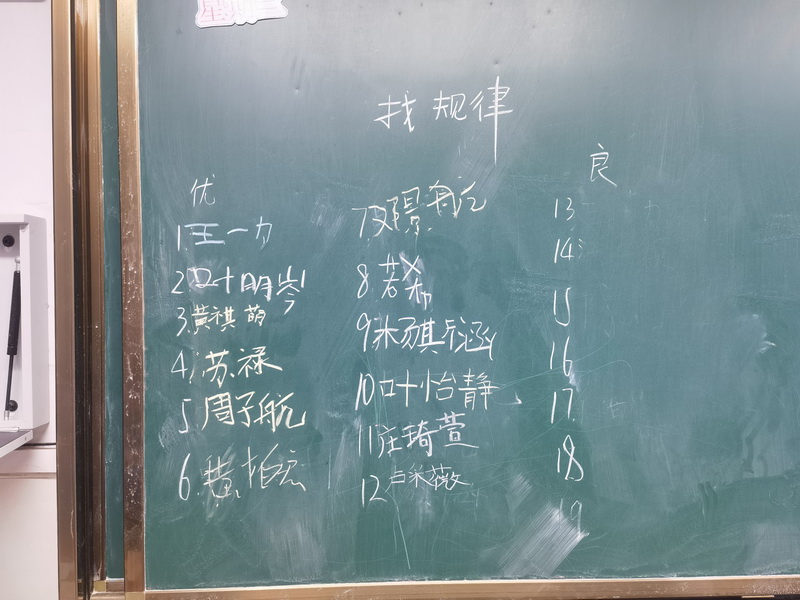 找规律
优
1 王一力
2 叶明岑
3. 黄祺萌
4. 苏禄
5. 周子航
6. 黄柏宏
7 景航
8 若希
9 涵
10 叶怡静
11 庄琦萱
12 卢采薇
良
13
14
15
16
17
18
19